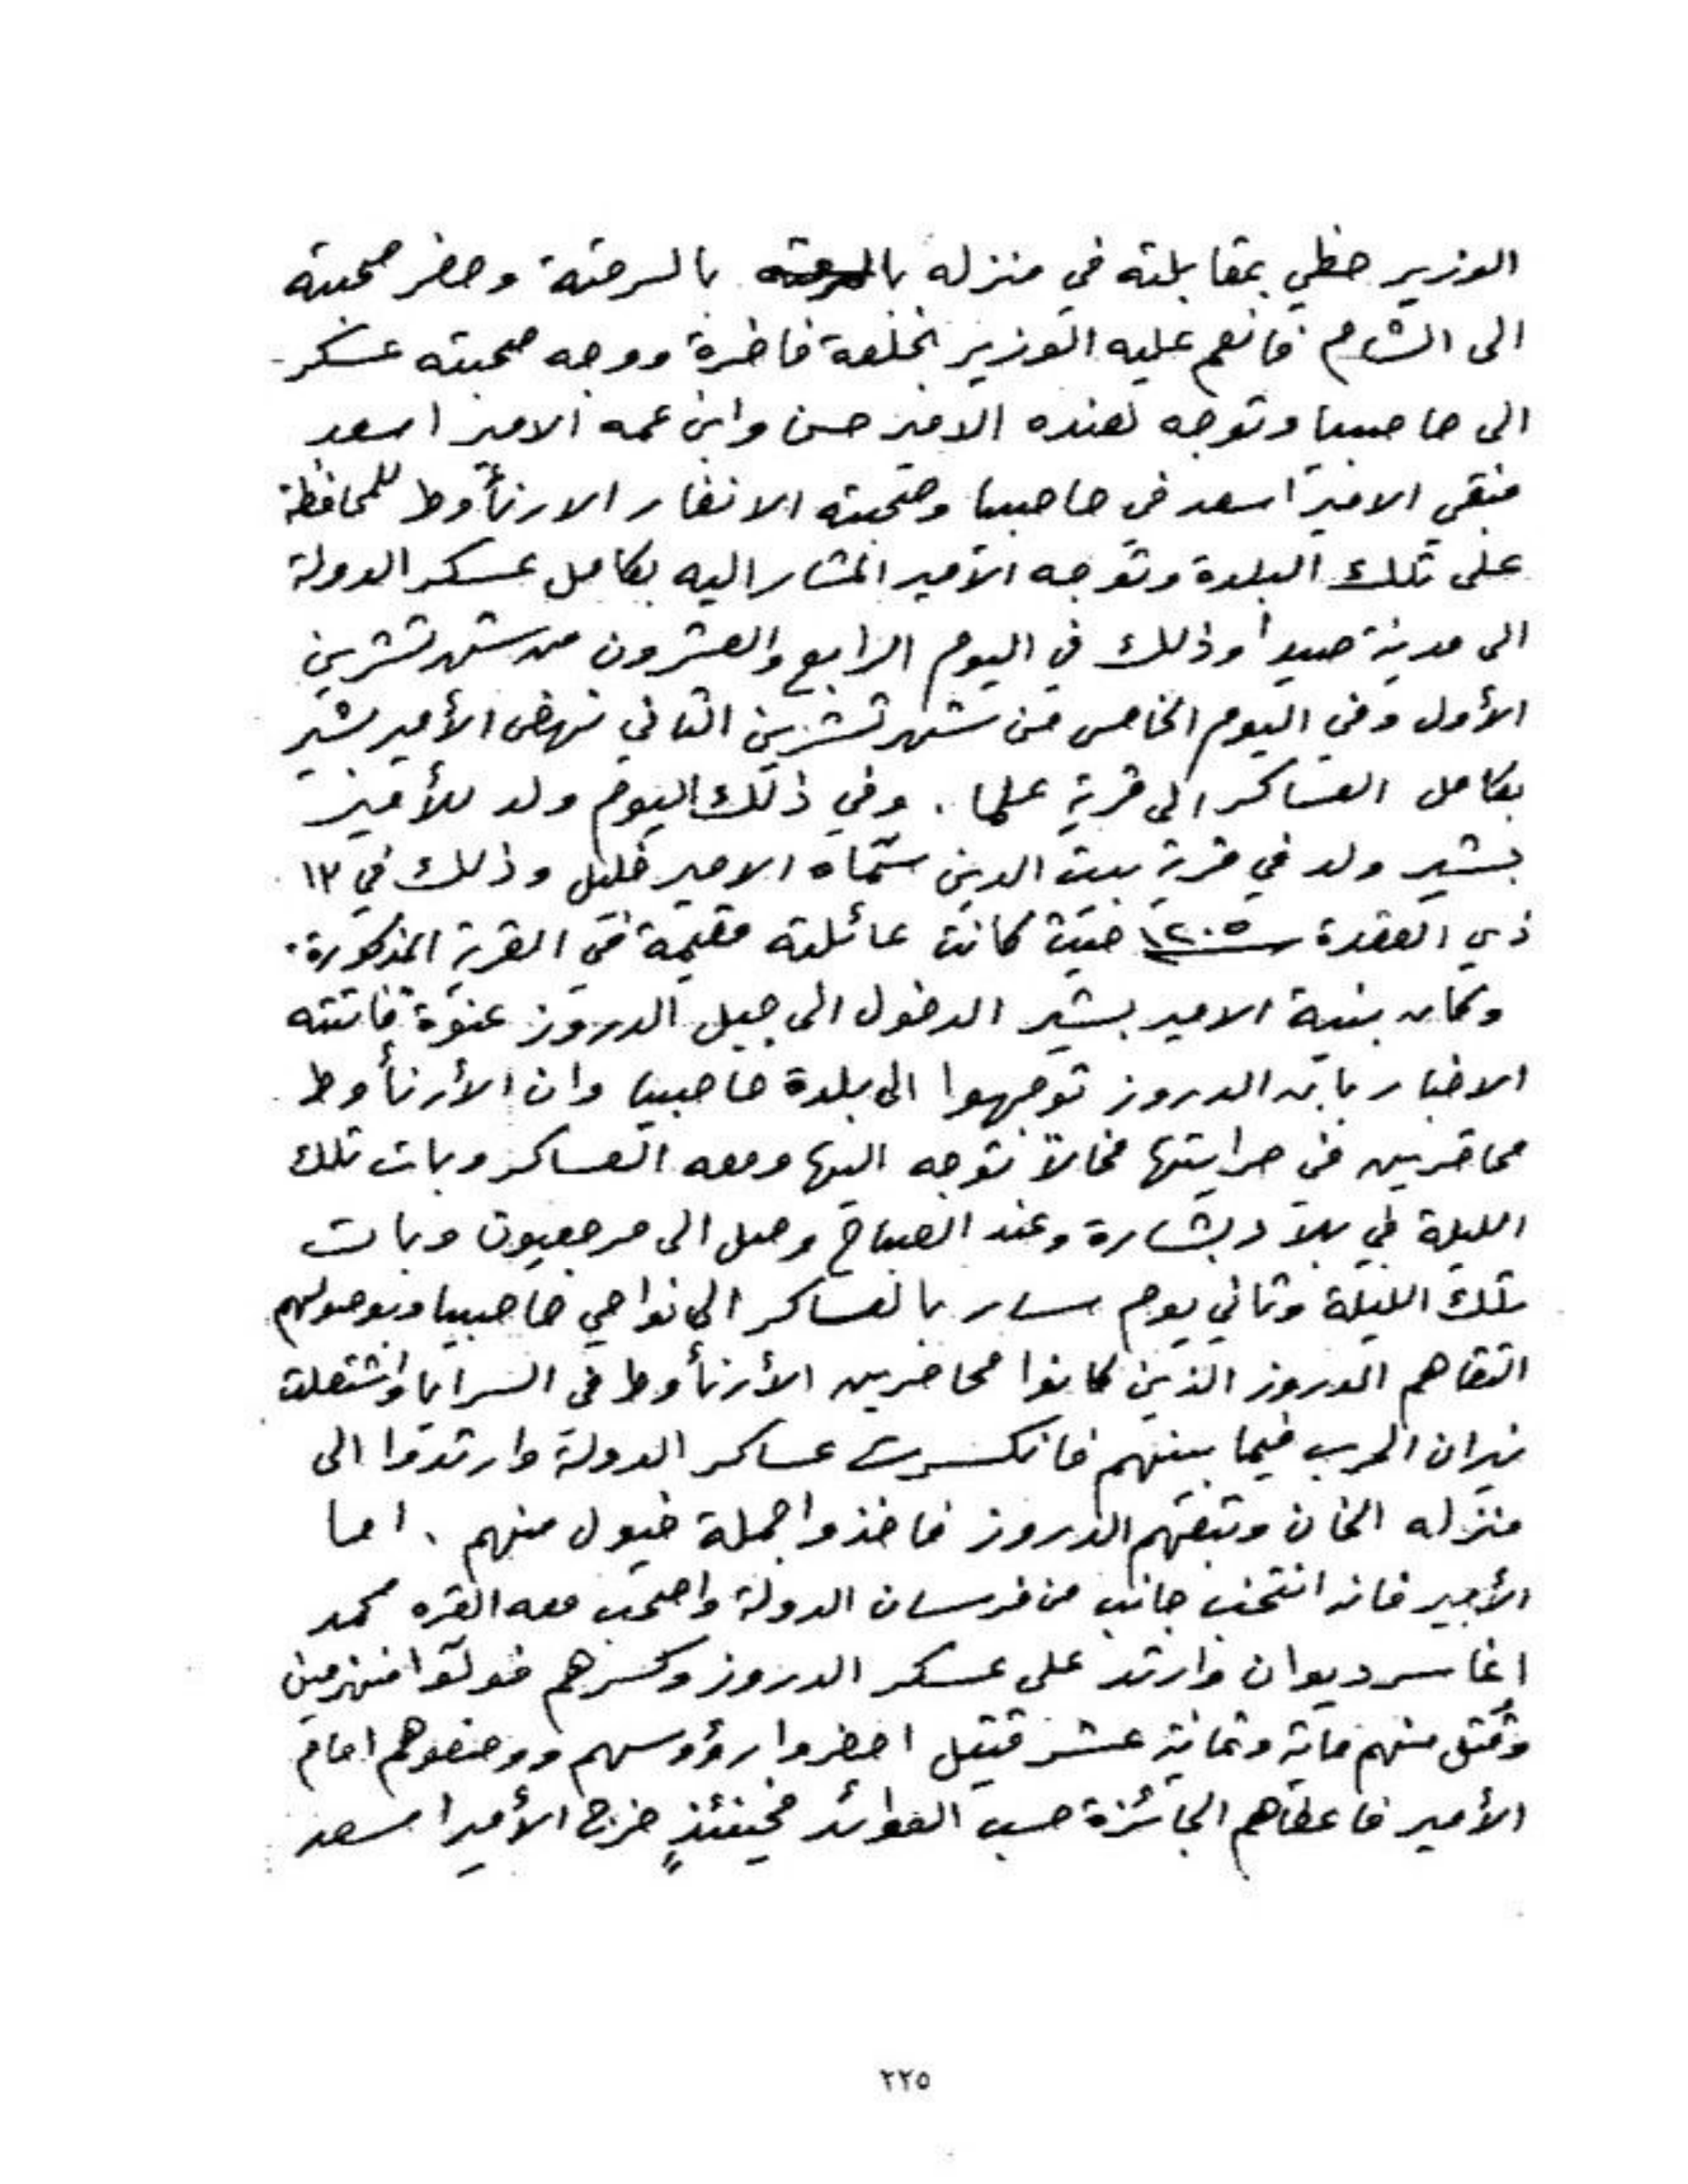 الوزير حظي بمقابلته في منزله بالسرحته بالسرحتة وحضر صحبته
الى الشام فانعم عليه الوزير بخلعة فاخرة ووجه صحبته عسكر
الى حاصبيا وتوجه لعنده الامير حسن وابن عمه الامير اسعد
فبقي الامير اسعد في حاصبيا وصحبته الانفار الارنأوط للمحافظة
على تلك البلدة وتوجه الأمير المشار اليه بكامل عسكر الدولة
الى مدينة صيدا وذلك في اليوم الرابع والعشرون من شهر تشرين
الأول وفي اليوم الخامس من شهر تشرين الثاني نهض الأمير بشير
بكامل العساكر الى قرية علما . وفي ذلك اليوم ولد للأمير
بشير ولد في قرية بيت الدين سمّاه الامير خليل وذلك في ١٣
ذي القعدة سنة ١٢٠٥ حيث كانت عائلته مقيمة في القرية المذكورة .
وكان بنية الامير بشير الدخول الى جبل الدروز عنوة فاتته
الاخبار بان الدروز توجهوا الى بلدة حاصبيا وان الأرنأوط
محاصرين في سرايتها فحالاً توجه اليها ومعه العساكر وبات تلك
الليلة في بلاد بشارة وعند الصباح وصل الى مرجعيون وبات
تلك الليلة وثاني يوم سار بالعساكر الى نواحي حاصبيا وبوصولهم
التقاهم الدروز الذين كانوا محاصرين الأرنأوط في السرايا واشتعلت
نيران الحرب فيما بينهم فانكسرت عساكر الدولة وارتدوا الى
منزله الخان وتبعهم الدروز فاخذوا جملة خيول منهم . اما
الأمير فانه انتخب جانب من فرسان الدولة واصحب معه القره محمد
اغا سر ديوان وارتد على عسكر الدروز وكسرهم فولّوا منهزمين
وقُتل منهم ماية وثمانية عشر قتيل احضروا رؤوسهم ووضعوهم امام
الأمير فاعطاهم الجائزة حسب العوائد فحينئذٍ خرج الأمير اسعد
٢٢٥